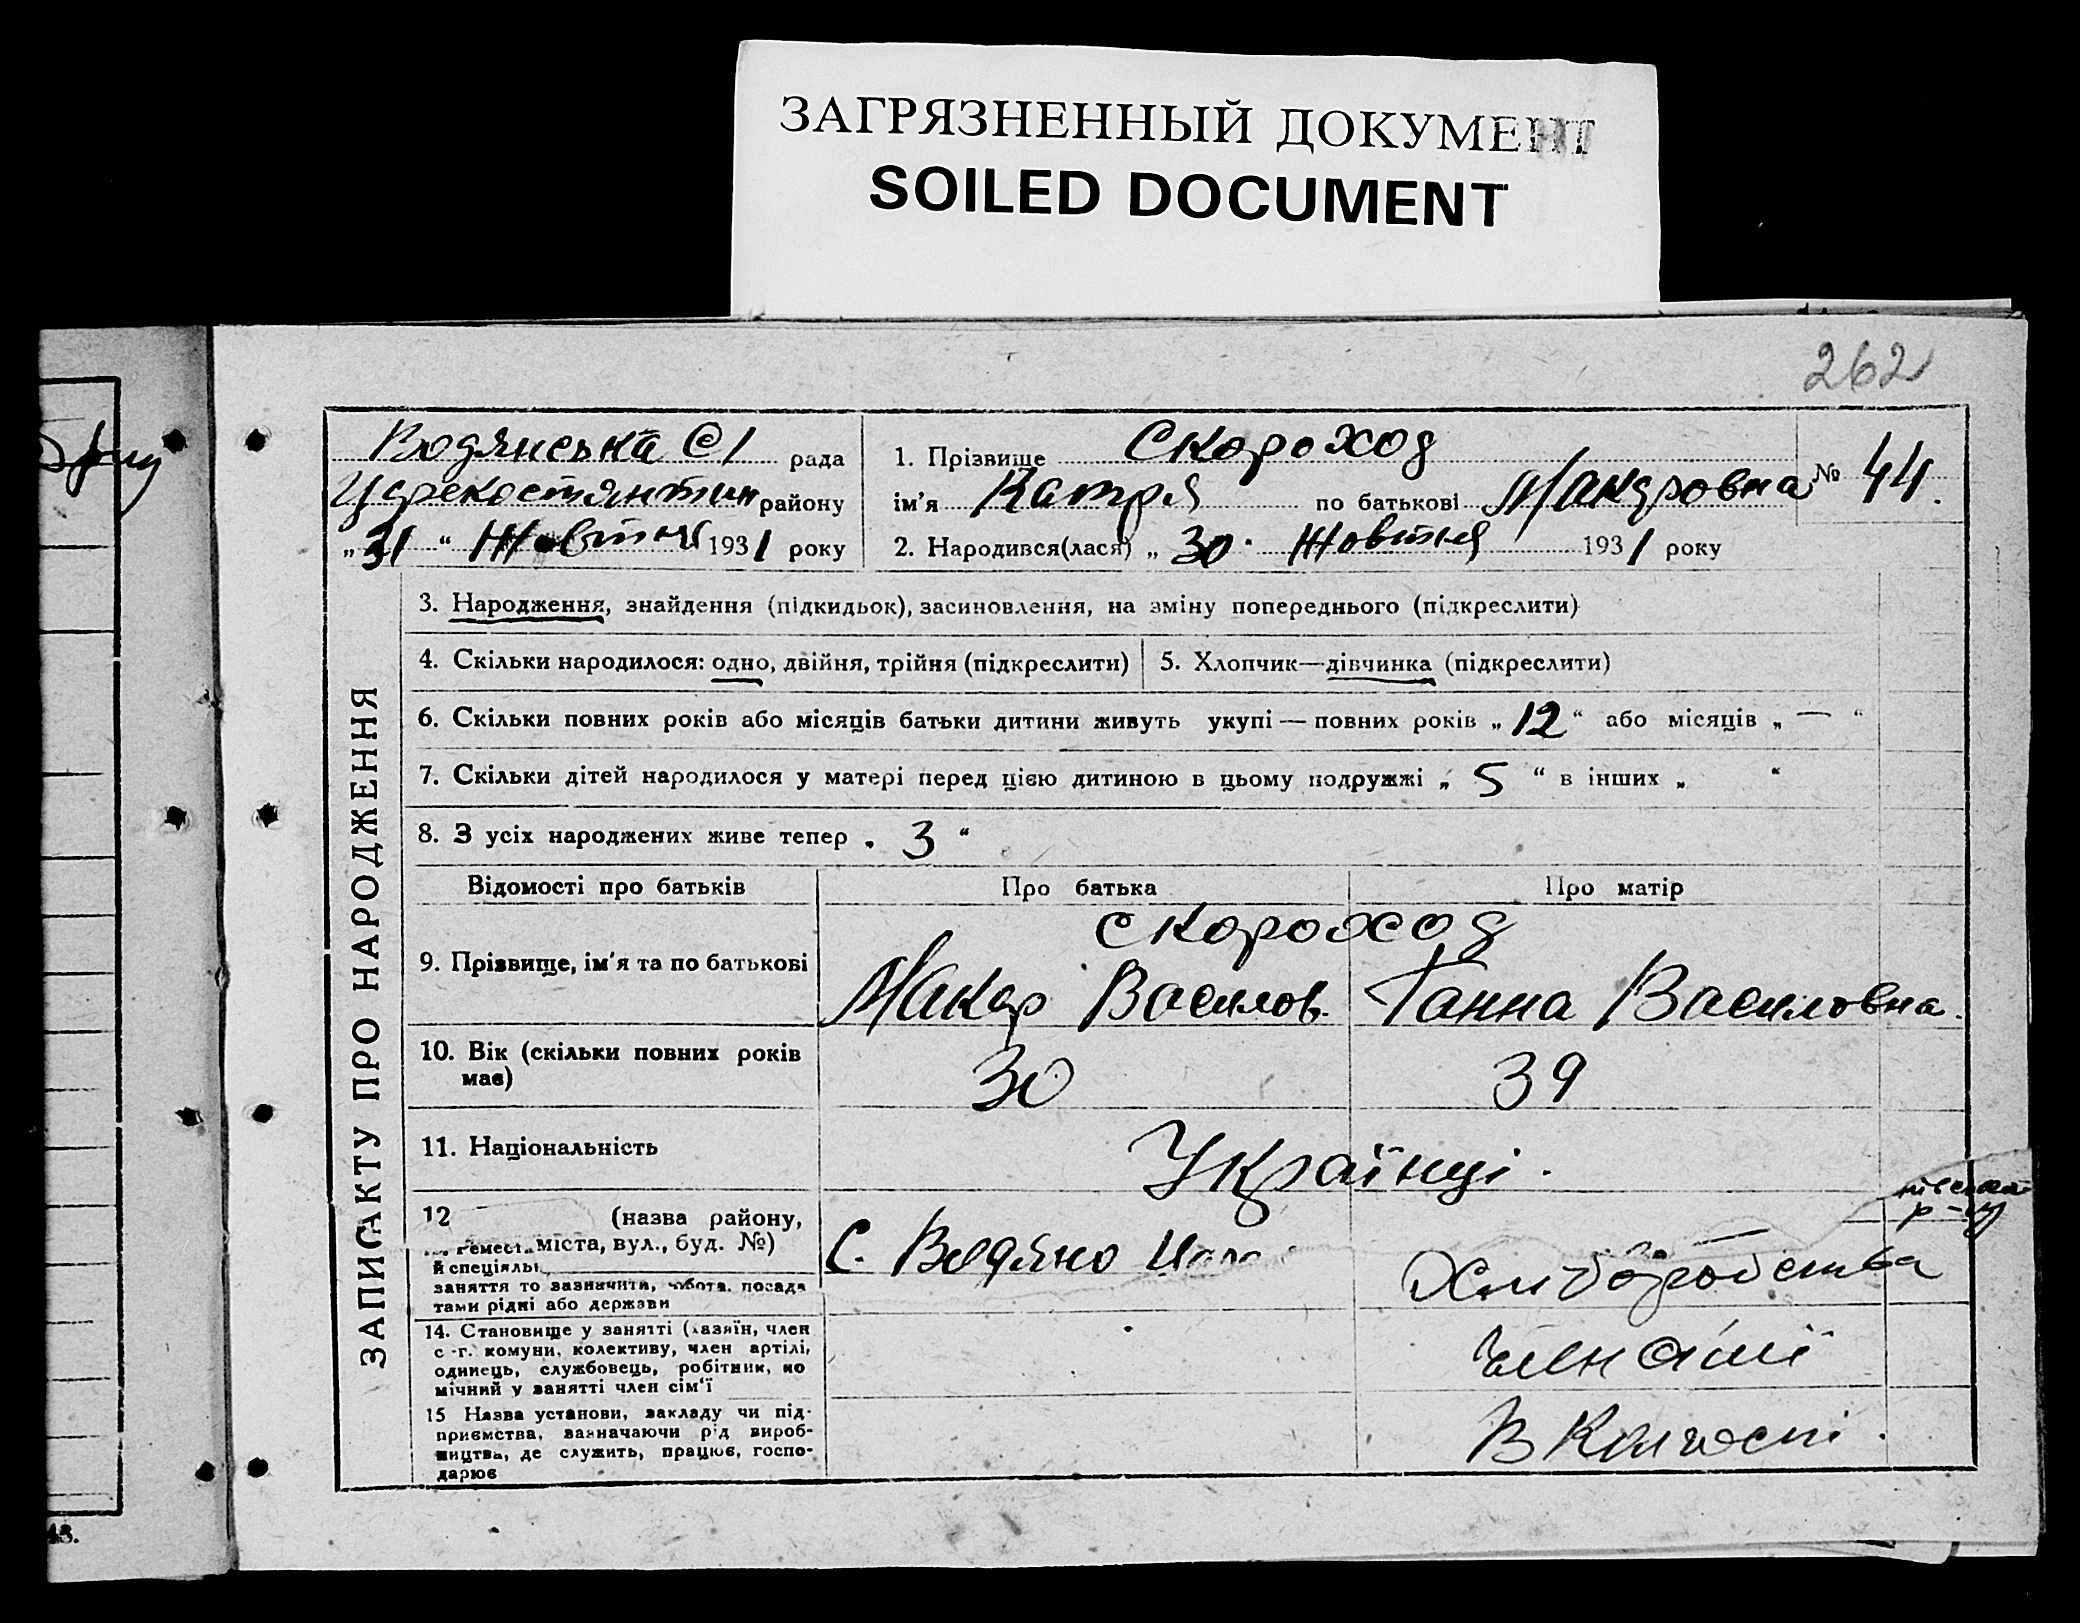 ЗАГРЯЗНЕННЫЙ ДОКУМЕНТ
SOILED DOCUMENT
262
ЗАПИС АКТУ ПРО НАРОДЖЕННЯ
Водянська С/ рада
Царекостянтин району
„31“ Жовтня 1931 року
1. Прізвище Скороход
ім'я Катря по батькові Макаровна
№ 44.
2. Народився(лася) „30“ Жовтня 1931 року
3. Народження, знайдення (підкидьок), засиновлення, на зміну попереднього (підкреслити)
4. Скільки народилося: одно, двійня, трійня (підкреслити)
5. Хлопчик—дівчинка (підкреслити)
6. Скільки повних років або місяців батьки дитини живуть укупі — повних років „12“ або місяців „—“
7. Скільки дітей народилося у матері перед цією дитиною в цьому подружжі „5“ в інших „ “
8. З усіх народжених живе тепер „3“
Відомості про батьків
Про батька
Про матір
9. Прізвище, ім'я та по батькові
Скороход
Макар Василов.
Ганна Василовна.
10. Вік (скільки повних років має)
30
39
11. Національність
Українці.
12
(назва району,
міста, вул., буд. №)
С. Водяно
р-ну
й спеціяльн
заняття то зазначити, робота, посада
тами рідні або держави
Хліборобства
14. Становище у занятті (хазяїн, член
с.-г. комуни, колективу, член артілі,
одинець, службовець, робітник, по
мічний у занятті член сім'ї
член сімї
15 Назва установи, закладу чи під-
приємства, зазначаючи рід вироб-
ництва, де служить, працює, госпо-
дарює
В Колгоспі.
48.